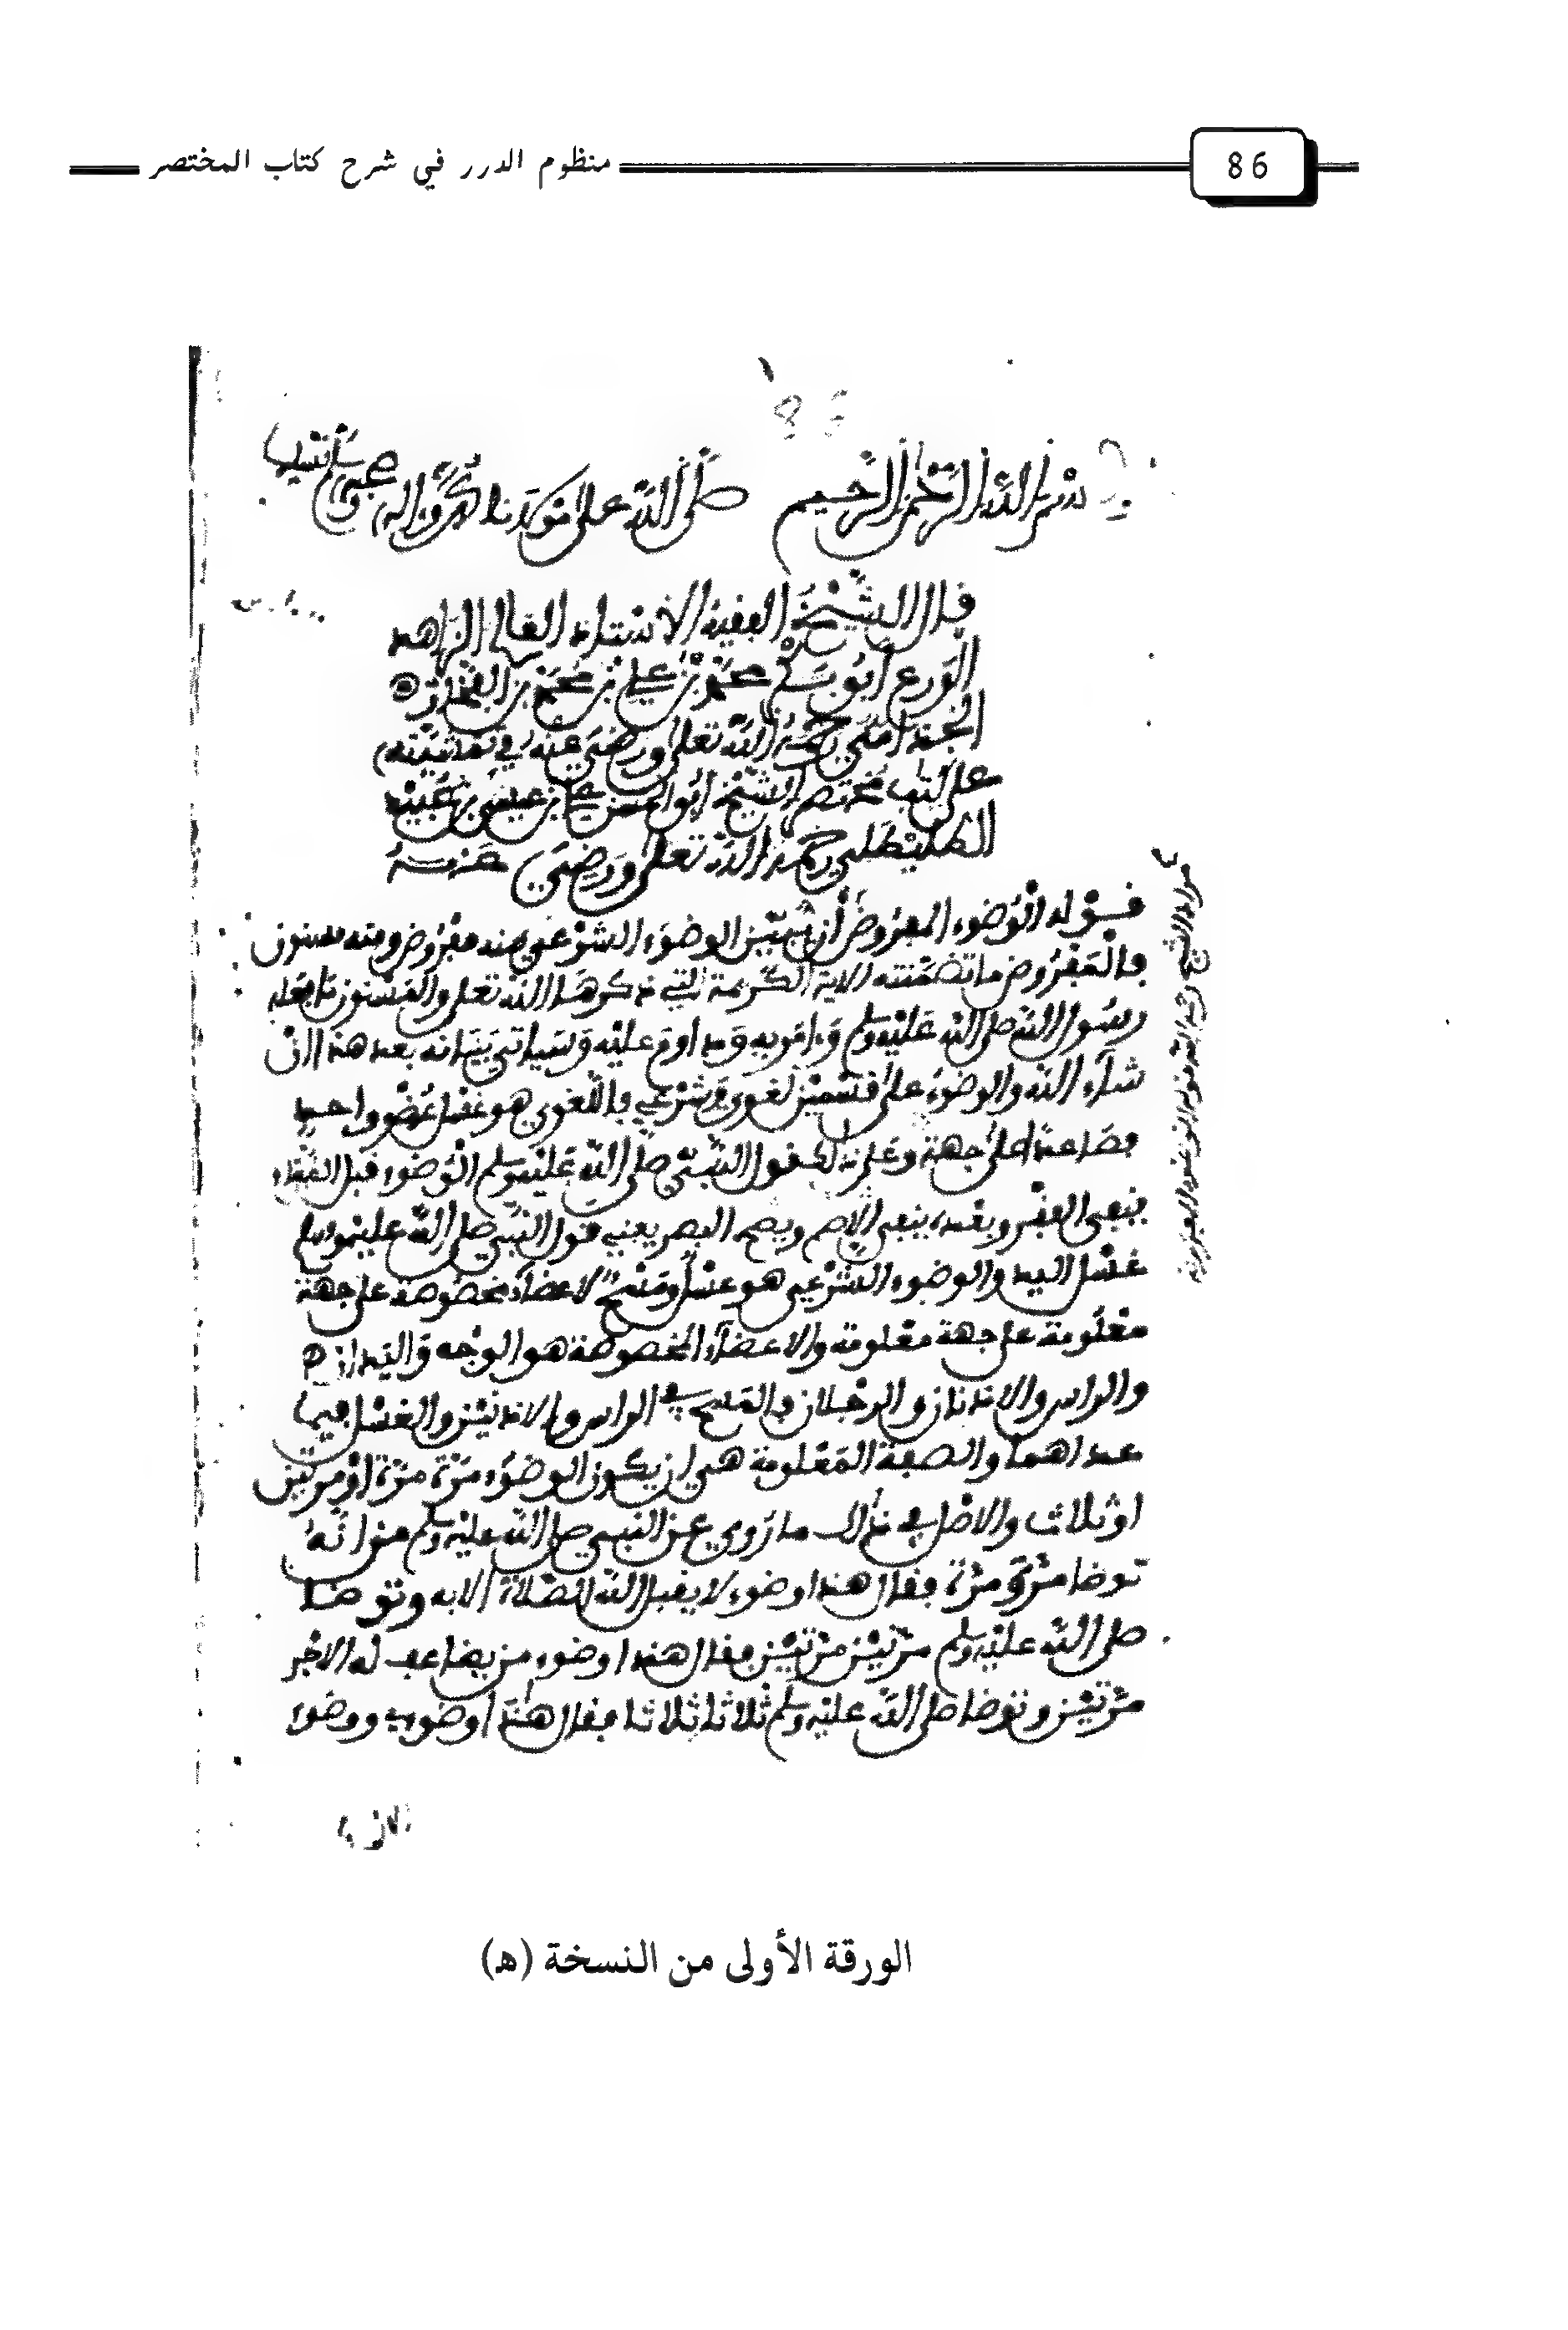 منظوم الدرر في شرح كتاب المختصر
86
بسم الله الرحمن الرحيم صلى الله على سيدنا محمد وآله وصحبه وسلم تسليما
قال الشيخ الفقيه الأستاذ العالم الزاهد
الورع أبو بكر محمد بن علي بن محمد بن الفخار
الجذامي رحمه الله تعلى ورضي عنه في تقييده
على كتاب مختصر الشيخ أبو الحسن علي بن عيسى بن عبيد
الطليطلي رحمه الله تعلى ورضي عنه
قوله الوضوء المفروض أن يبين الوضوء الشرعي منه مفروض ومنه مسنون
فالمفروض ما تضمنته الآية الكريمة التي ذكرها الله تعلى والمسنون ما فعله
رسول الله صلى الله عليه وسلم وامر به وداوم عليه وسياتي بيانه بعد هذا ان
شاء الله والوضوء على قسمين لغوي وشرعي فاللغوي هو غسل عضو واحد
فصاعدا على جهة كقول النبي صلى الله عليه وسلم الوضوء قبل الغذاء
ينفي الفقر وبعده ينفي اللمم ويصح البصر يعني قول النبي صلى الله عليه وسلم
غسل اليد والوضوء الشرعي هو غسل ومسح لاعضاء مخصوصة على جهة
معلومة على جهة معلومة والاعضاء المخصوصة هو الوجه واليدان
والراس والاذنان والرجلان فالمسح في الراس والاذنين والغسل فيما
عداهما والصفة المعلومة هي ان يكون الوضوء مرة مرة او مرتين
او ثلاث والاصل في ذلك ما روي عن النبي صلى الله عليه وسلم انه
توضا مرة مرة فقال هذا وضوء لا يقبل الله الصلاة الا به وتوضا
صلى الله عليه وسلم مرتين مرتين فقال هذا وضوء من يضاعف له الاجر
مرتين وتوضا صلى الله عليه وسلم ثلاثا ثلاثا فقال هذا وضوءي ووضوء
الورقة الأولى من النسخة (ه)